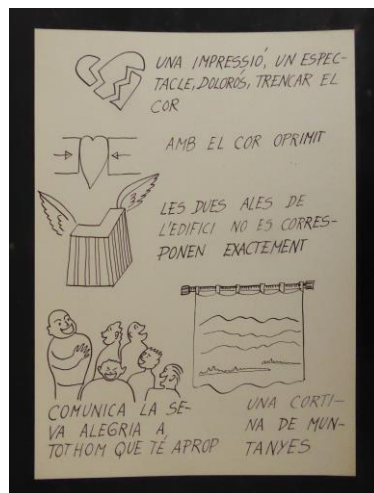 UNA IMPRESSIÓ, UN ESPEC-
TACLE, DOLORÓS, TRENCAR EL
COR
AMB EL COR OPRIMIT
LES DUES ALES DE
L'EDIFICI NO ES CORRES-
PONEN EXACTEMENT
COMUNICA LA SE-
VA ALEGRIA A
TOTHOM QUE TÉ APROP
UNA CORTI-
NA DE MUN-
TANYES